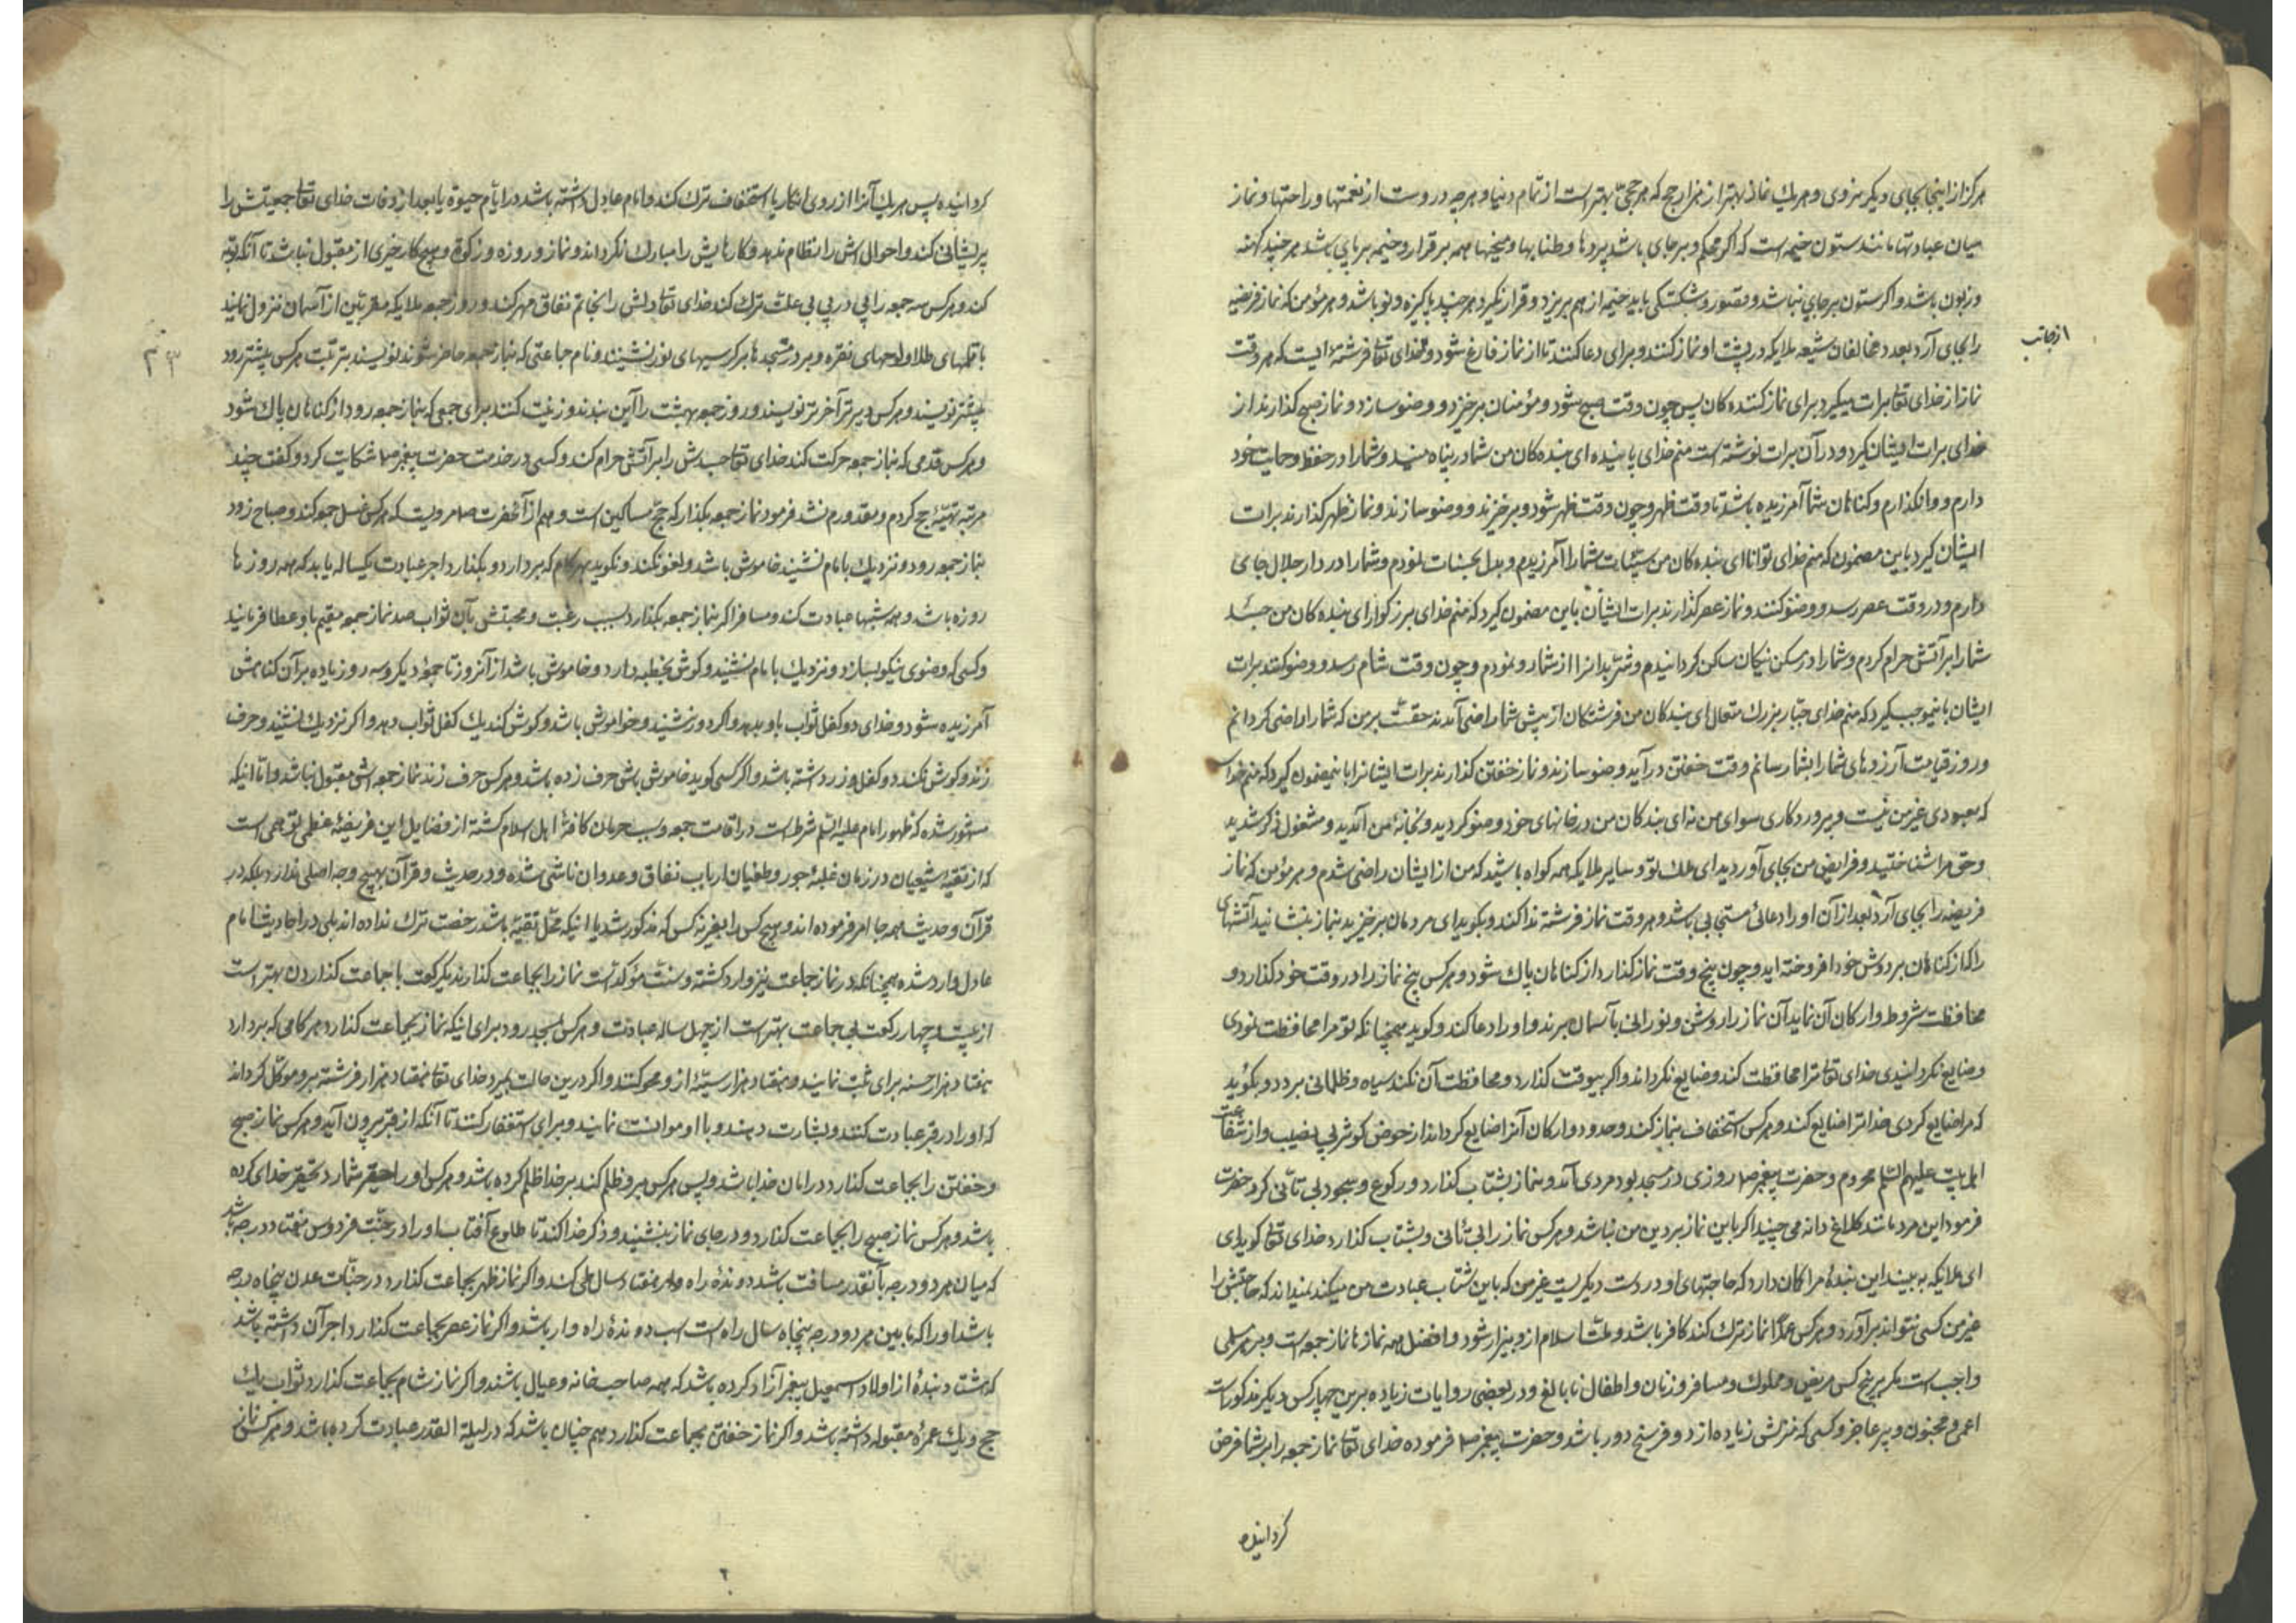 هرگز از اینجا بجای دیگر نروی و هر یك نماز بهتر از هزار حج که هر حجی بهتر است از تمام دنیا و هر چه دروست از نعمتها و راحتها و نماز
میان عبادتها مانند ستون خیمه است که اگر محکم و بر جای باشد پردها و طنابها و میخها همه برقرار و خیمه بر پای باشد هر چند کهنه
و زبون باشد و اگر ستون بر جای نباشد و قصور و شکستگی یابد خیمه از هم بریزد و قرار نگیرد هر چند پاکیزه و نو باشد و هر مؤمن که نماز فریضه
را بجای آرد بعدد مخالفان شیعه ملایکه در پشت او نماز کنند و برای دعا کنند تا از نماز فارغ شود و خدای تعالی فرشتهٔ ایست که هر وقت
از جانب
نماز از خدای تعالی برات میگیرد برای نماز کننده کان پس چون وقت صبح شود و مؤمنان برخیزد و وضو سازد و نماز صبح گذارند از
خدای برات ایشان گیرد و در آن برات نوشته است منم خدای پاینده ای بنده کان من شما در پناه منید و شما را در حفظ و حمایت خود
دارم و وانگذارم و گناهان شما آمرزیده باشد تا وقت ظهر و چون وقت ظهر شود و برخیزند و وضو سازند و نماز ظهر گذارند برات
ایشان گیرد باین مضمون که منم خدای توانا ای بنده کان من سیئات شما را آمرزیدم و بدل بحسنات نمودم و شما را در دار جلال جای
دارم و در وقت عصر رسد و وضو کنند و نماز عصر گذارند برات ایشان باین مضمون گیرد که منم خدای بزرگوار ای بنده کان من جسد
شما را بر آتش حرام کردم و شما را در مسکن نیکان ساکن گردانیدم و شر بدانرا از شما رو نمودم و چون وقت شام رسد و وضو کنند برات
ایشان باینوجب گیرد که منم خدای جبار بزرك متعال ای بندکان من فرشتکان از پیش شما راضی آمدند حقست بر من که شما را راضی گردانم
و روز قیامت آرزوهای شما را بشما رسانم وقت خفتن درآید و وضو سازند و نماز خفتن گذارند برات ایشانرا باینمضمون گیرد که منم خدا
که معبودی غیر من نیست و پروردکاری سوای من نه ای بندکان من در خانهای خود وضو کردید و بخانهٔ من آمدید و مشغول ذکر شدید
و حق مرا شناختید و فرایض من بجای آوردید ای ملك تو و سایر ملایکه همه گواه باشید که من از ایشان راضی شدم و هر مؤمن که نماز
فریضه را بجای آرد بعد از آن او را دعائی مستجابی باشد و هر وقت نماز فرشته ندا کند و بگوید ای مردمان برخیزید بنماز بنشانید آتشهای
را که از گناهان بر دوش خود افروخته اید و چون پنج وقت نماز گذارد از گناهان پاك شود و هر کس پنج نماز را در وقت خود گذارد و
محافظت شروط و ارکان آن نماید آن نماز را روشن و نورانی بآسمان برند و او را دعا کند و گوید همچنانکه تو مرا محافظت نمودی
و ضایع نگردانیدی خدای تعالی ترا محافظت کند و ضایع نگرداند و اگر بیوقت گذارد و محافظت آن نکند سیاه و ظلمانی برد و بگوید
که مرا ضایع کردی خدا ترا ضایع کند و هر کس استخفاف بنماز کند و حدود و ارکان آنرا ضایع گرداند از حوض کوثر بی نصیب و از شفاعت
اهل بیت علیهم السلم محروم و حضرت پیغمبر ص روزی در مسجد بود مردی آمد و نماز بشتاب گذارد و رکوع و سجود بی تأنی کرد حضرت
فرمود این مرد مانند کلاغ دانه می چیند اگر باین نماز بمیرد بر دین من نباشد و هر کس نماز را بی تأنی و بشتاب گذارد خدای تعالی گوید ای
ای ملایکه به بیند این بندهٔ مرا گمان دارد که حاجتهای او در دست دیگریست غیر من که باین شتاب عبادت من میکند نمیداند که حاجتش را
غیر من کسی نتواند برآورد و هر کس عمدا نماز ترك کند کافر باشد و ملت اسلام ازو بیزار شود و افضل همه نمازها نماز جمعه است و بر هر مسلمی
واجب است مگر بر پنج کس مریض و مملوك و مسافر و زنان و اطفال نابالغ و در بعضی روایات زیاده برین چهار کس دیگر مذکور است
اعمی و مجنون و پیر عاجز و کسی که منزلش زیاده از دو فرسخ دور باشد و حضرت پیغمبر ص فرموده خدای تعالی نماز جمعه را بر شما فرض
گردانیده
گردانیده پس هر یك آنرا از روی انکار یا استخفاف ترك کند و امام عادل داشته باشد در ایام حیوة یا بعد از وفات خدای تعالی جمعیتش را
پریشانی کند و احوالی اش را نظام ندهد و کارهایش را مبارك نگرداند و نماز و روزه و زکوة و هیچ کار خیری از مقبول نباشد تا آنکه توبه
کند و هر کس سه جمعه را پی در پی بی علت ترك کند خدای تعالی دلش را بخاتم نفاق مهر کند و روز جمعه ملایکه مقربین از آسمان نزول نمایند
با قلمهای طلا و لوحهای نقره و بر در مسجدها بر کرسیهای نور نشینند و نام جماعتی که بنماز جمعه حاضر شوند نویسند بترتیب هر کس پیشتر رود
۳۳
پیشتر نویسند و هر کس دیرتر آخرتر نویسند و روز جمعه بهشت را آین بندند و زینت کنند برای جمعی که بنماز جمعه رود از گناهان پاك شود
و هر کس قدمی که بنماز جمعه حرکت کند خدای تعالی جسدش را بر آتش حرام کند و کسی در خدمت حضرت پیغمبر ص شکایت کرد و گفت چند
مرتبه تهیهٔ حج کردم و مقدورم نشد فرمود نماز جمعه بگذار که حج مساکین است و هم از آنحضرت ص مرویست که هر کس غسل جمعه کند و صباح زود
بنماز جمعه رود و نزدیك بامام نشیند خاموش باشد و لغو نکند و نگوید بهر گام که بردارد و بگذارد اجر عبادت یکساله یابد که همه روزها
روزه باشد و همه شبها عبادت کند و مسافر اگر نماز جمعه بگذارد بسبب رغبت و محبتش بآن ثواب صد نماز جمعه مقیم باو عطا فرمایند
و کسی که وضوی نیکو بسازد و نزدیك بامام نشیند و گوش بخطبه دارد و خاموش باشد از آنروز تا جمعهٔ دیگر و سه روز زیاده بر آن گناهش
آمرزیده شود و خدای دو کفل ثواب باو بدهد و اگر دور نشیند و خواموش باشد و گوش کند یك کفل ثواب دهد و اگر نزدیك نشیند و حرف
زند و گوش نکند دو کفل وزر داشته باشد و اگر کسی گوید خاموش باش حرف زده باشد و هر کس حرف زند نماز جمعه اش مقبول نباشد و اما اینکه
مشهور شده که ظهور امام علیه السلم شرط است در اقامت جمعه و سبب حرمان کافهٔ اهل اسلام گشته از فضایل این فریضهٔ عظمی توهمی است
که از تقیهٔ شیعیان در زمان غلبهٔ جور و طغیان ارباب نفاق و عدوان ناشی شده و در حدیث و قرآن بهیچ وجه اصلی ندارد بلکه در
قرآن و حدیث همه جا امر فرموده اند و هیچ کس را بغیر نه کس که مذکور شد یا اینکه محل تقیه باشد رخصت ترك نداده اند بلی در احادیث امام
عادل وارد شده همچنانکه در نماز جماعت نیز وارد گشته و سنت مؤکد است نماز را بجماعت گذارند یکرکعت با جماعت گذاردن بهتر است
از بیست و چهار رکعت بی جماعت بهتر است از چهل ساله عبادت و هر کس بمسجد رود برای اینکه نماز بجماعت گذارد هر گامی که بردارد
هفتاد هزار حسنه برای ثبت نمایند و هفتاد هزار سیئه ازو محو کنند و اگر درین حالت بمیرد خدای تعالی هفتاد هزار فرشته برو موکل گرداند
که او را در قبر عبادت کنند و بشارت دهند و با او موانست نمایند و برای استغفار کنند تا آنکه از قبر بیرون آید و هر کس نماز صبح
و خفتن را بجماعت گذارد در امان خدا باشد و پس هر کس برو ظلم کند بر خدا ظلم کرده باشد و هر کس او را حقیر شمارد تحقیر خدای کرده
باشد و هر کس نماز صبح را بجماعت گذارد و در جای نماز بنشیند و ذکر خدا کند تا طلوع آفتاب او را در جنت فردوس هفتاد درجه باشد
که میان هر دو درجه آنقدر مسافت باشد دوندهٔ راه وار هفتاد سال طی کند و اگر نماز ظهر بجماعت گذارد در جنات عدن پنجاه درجه
باشد او را که مابین هر دو درجه پنجاه سال راه است اسب دوندهٔ راه وار باشد و اگر نماز عصر بجماعت گذارد اجر آن داشته باشد
که هشت بندهٔ از اولاد اسمعیل پیغمبر آزاد کرده باشد که همه صاحب خانه و عیال باشند و اگر نماز شام بجماعت گذارد ثواب یك
حج و یك عمرهٔ مقبوله داشته باشد و اگر نماز خفتن بجماعت گذارد هم چنان باشد که در لیلة القدر عبادت کرده باشد و هر کس